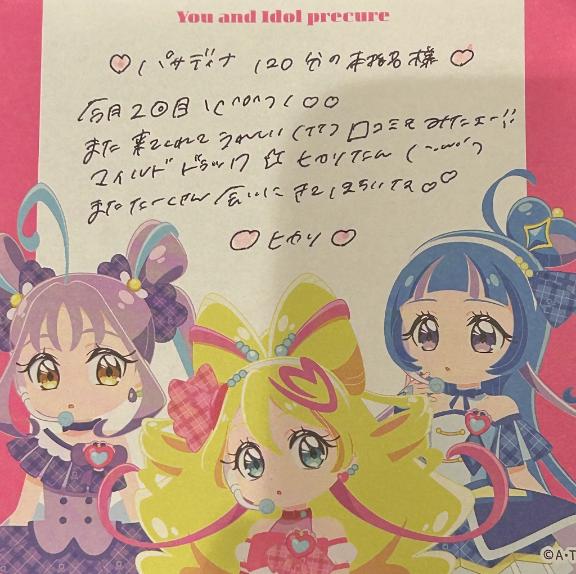 You and Idol precure
♡ パサディナ 120分の本指名様 ♡
今月2回目 (^o^) ♡♡
また 来てくれて うれしい 口コミも みたよー!!
マイルド ドラッグ ☆ ヒカリたん
また たーくさん 会いに きて ♡♡
♡ ヒカリ ♡
©A・T